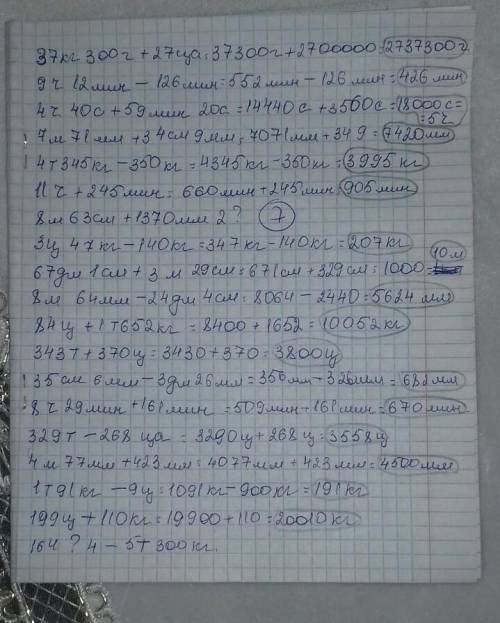 37кг 300г + 27ца = 37300г + 2700000 = 2737300г
9ч 12мин - 126мин = 552мин - 126мин = 426мин
4ч 40с + 59мин 20с = 14440с + 3560с = 18000с = = 5ч
7м 71мм + 34см 9мм = 7071мм + 349 = 7420мм
4т345кг - 350кг = 4345кг - 350кг = 3995кг
11ч + 245мин = 660мин + 245мин = 905мин
8м 63см + 1370мм 2 ? 7
3ц 47кг - 140кг = 347кг - 140кг = 207кг
10м
67дм 1см + 3м 29см = 671см + 329см = 1000 =
8м 64мм - 24дм 4см = 8064 - 2440 = 5624мм
84ц + 1т652кг = 8400 + 1652 = 10052кг
343т + 370ц = 3430 + 370 = 3800ц
35см 6мм - 3дм 26мм = 356мм - 326мм = 682мм
8ч 29мин + 161мин = 509мин + 161мин = 670мин
329т - 268ца = 3290ц + 268ц = 3558ц
4м 77мм + 423мм = 4077мм + 423мм = 4500мм
1т91кг - 9ц = 1091кг - 900кг = 191кг
199ц + 110кг = 19900 + 110 = 20010кг
164 ? 4 - 5т 300кг.